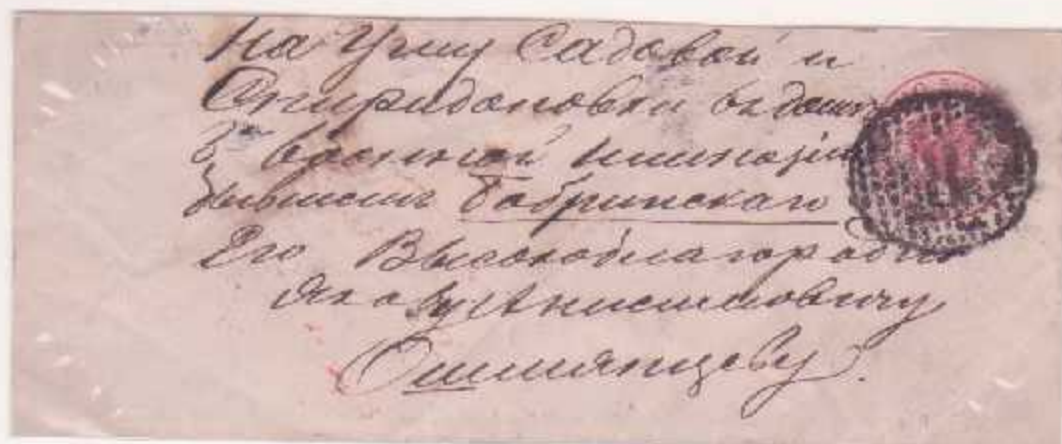 На Углу Садовой и
Спиридоновки въ домѣ
3й военной гимназіи
бывшемъ Бобринскаго
Его Высокоблагородію
Якову Анисимовичу
Ошмянцеву.